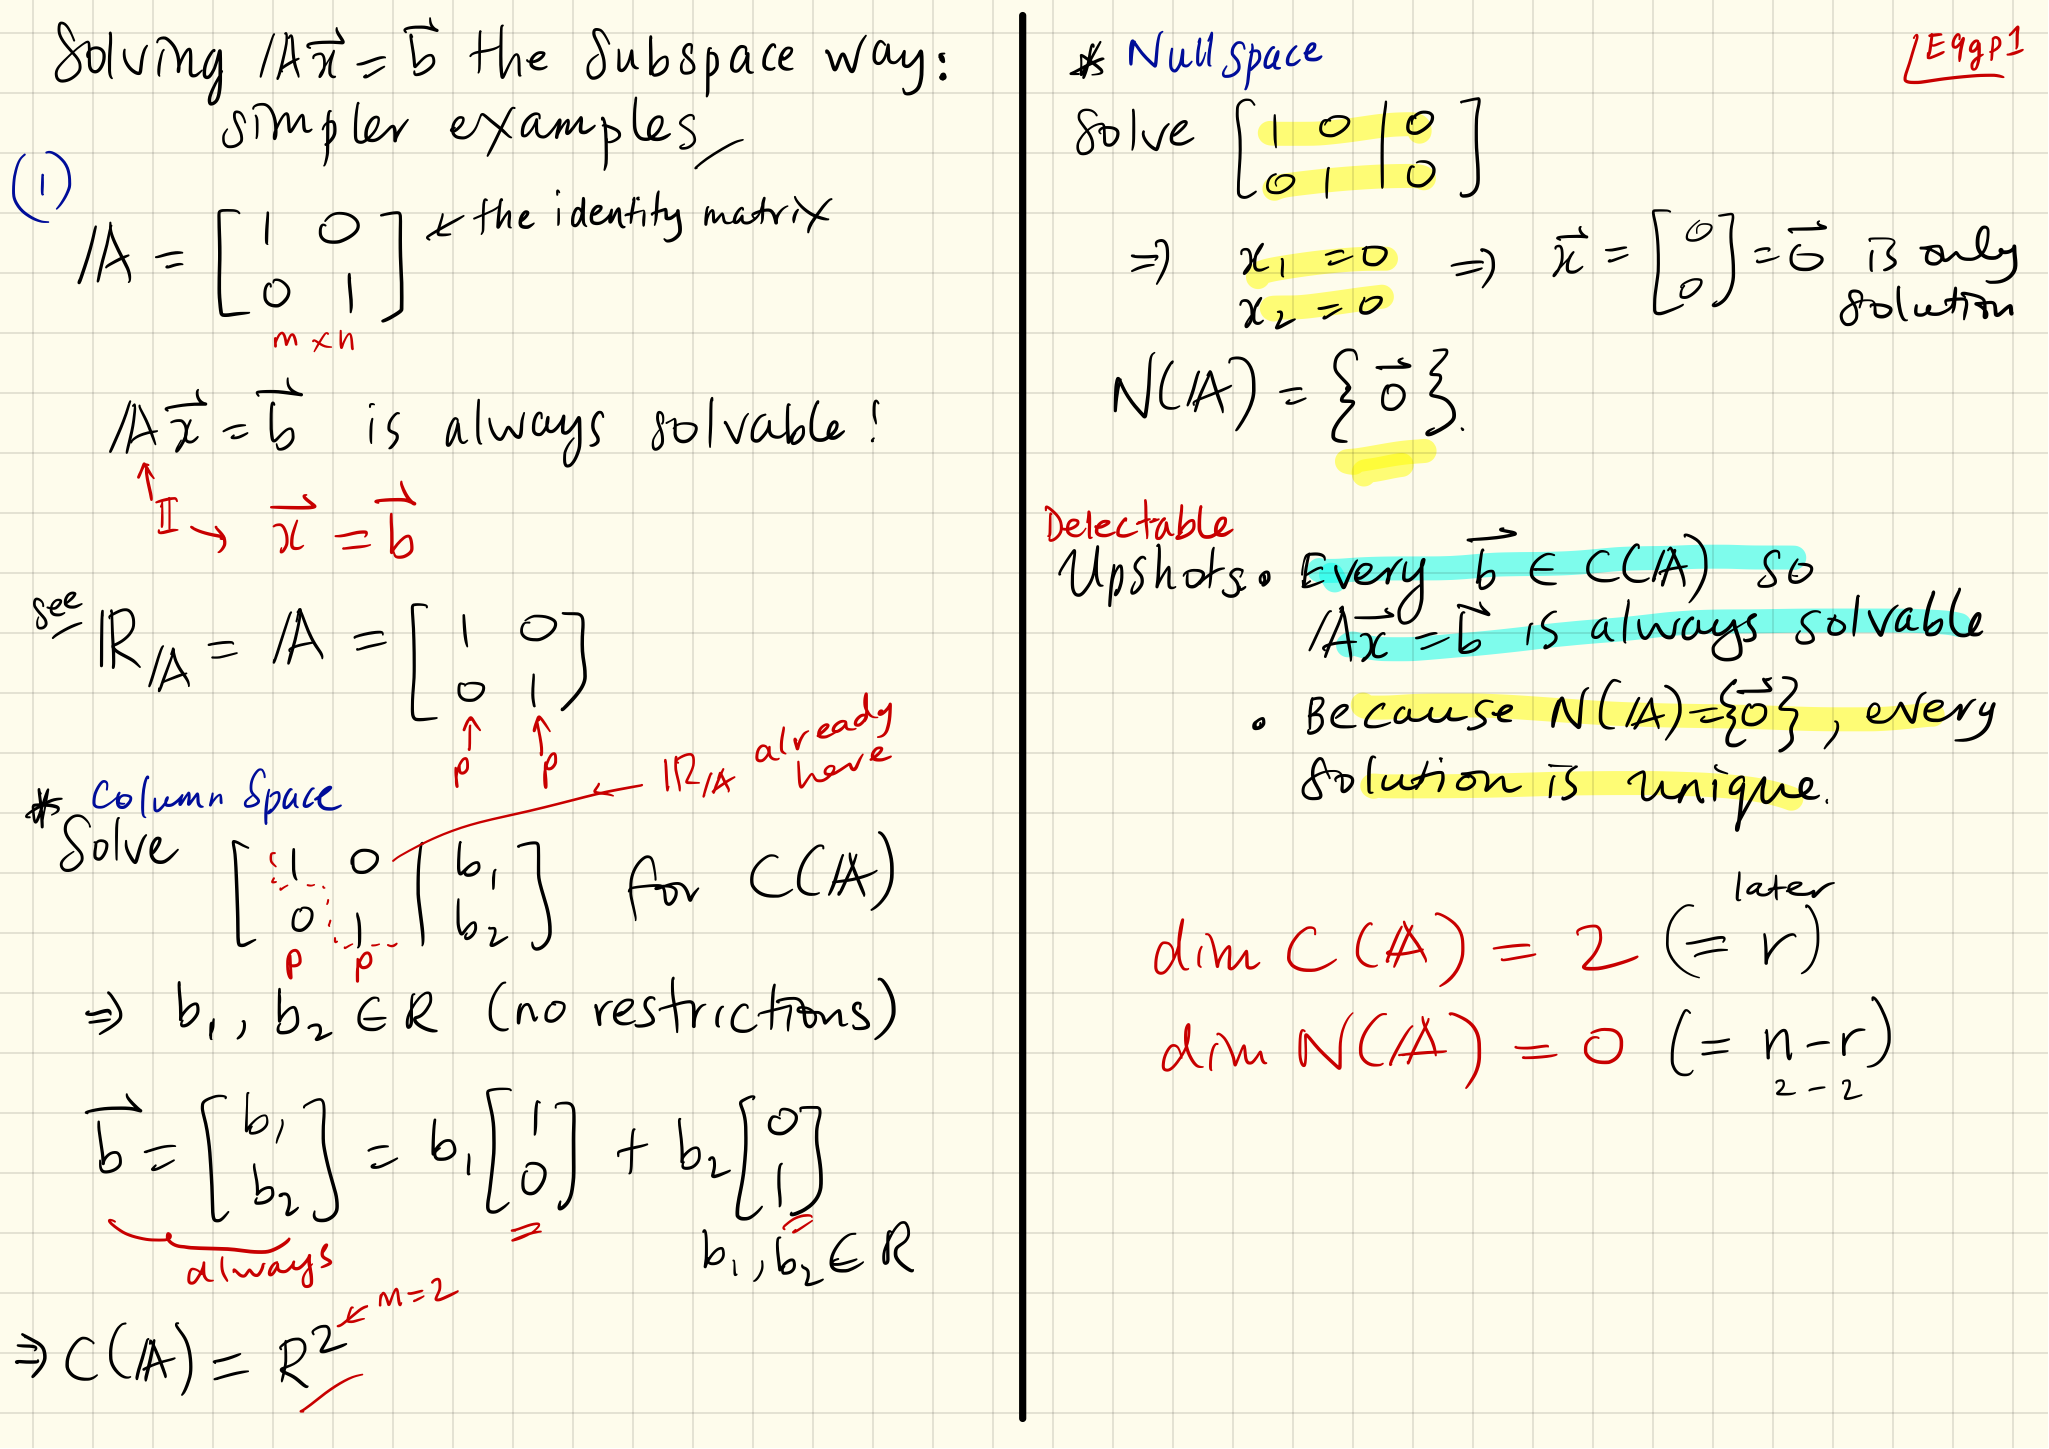 Solving 𝔸x⃗ = b⃗ the subspace way:
simpler examples
(1)
𝔸 = [1 0; 0 1] ← the identity matrix
m × n
𝔸x⃗ = b⃗ is always solvable!
↑
𝕀 → x⃗ = b⃗
see
ℝ_𝔸 = 𝔸 = [1 0; 0 1]
↑ ↑
p p ← ℝ_𝔸 already here
* Column Space
Solve [1 0 | b₁; 0 1 | b₂] for C(𝔸)
p p
⇒ b₁, b₂ ∈ R (no restrictions)
b⃗ = [b₁; b₂] = b₁[1; 0] + b₂[0; 1]
always
b₁, b₂ ∈ R
⇒ C(𝔸) = R² ← m=2
* Null Space
Eqgp1
Solve [1 0 | 0; 0 1 | 0]
⇒ x₁ = 0 ⇒ x⃗ = [0; 0] = 0⃗ is only
x₂ = 0 solution
N(𝔸) = {0⃗}.
Delectable
Upshots • Every b⃗ ∈ C(𝔸) so
𝔸x⃗ = b⃗ is always solvable
• Because N(𝔸)={0⃗}, every
solution is unique.
later
dim C(𝔸) = 2 (= r)
dim N(𝔸) = 0 (= n-r)
2 - 2